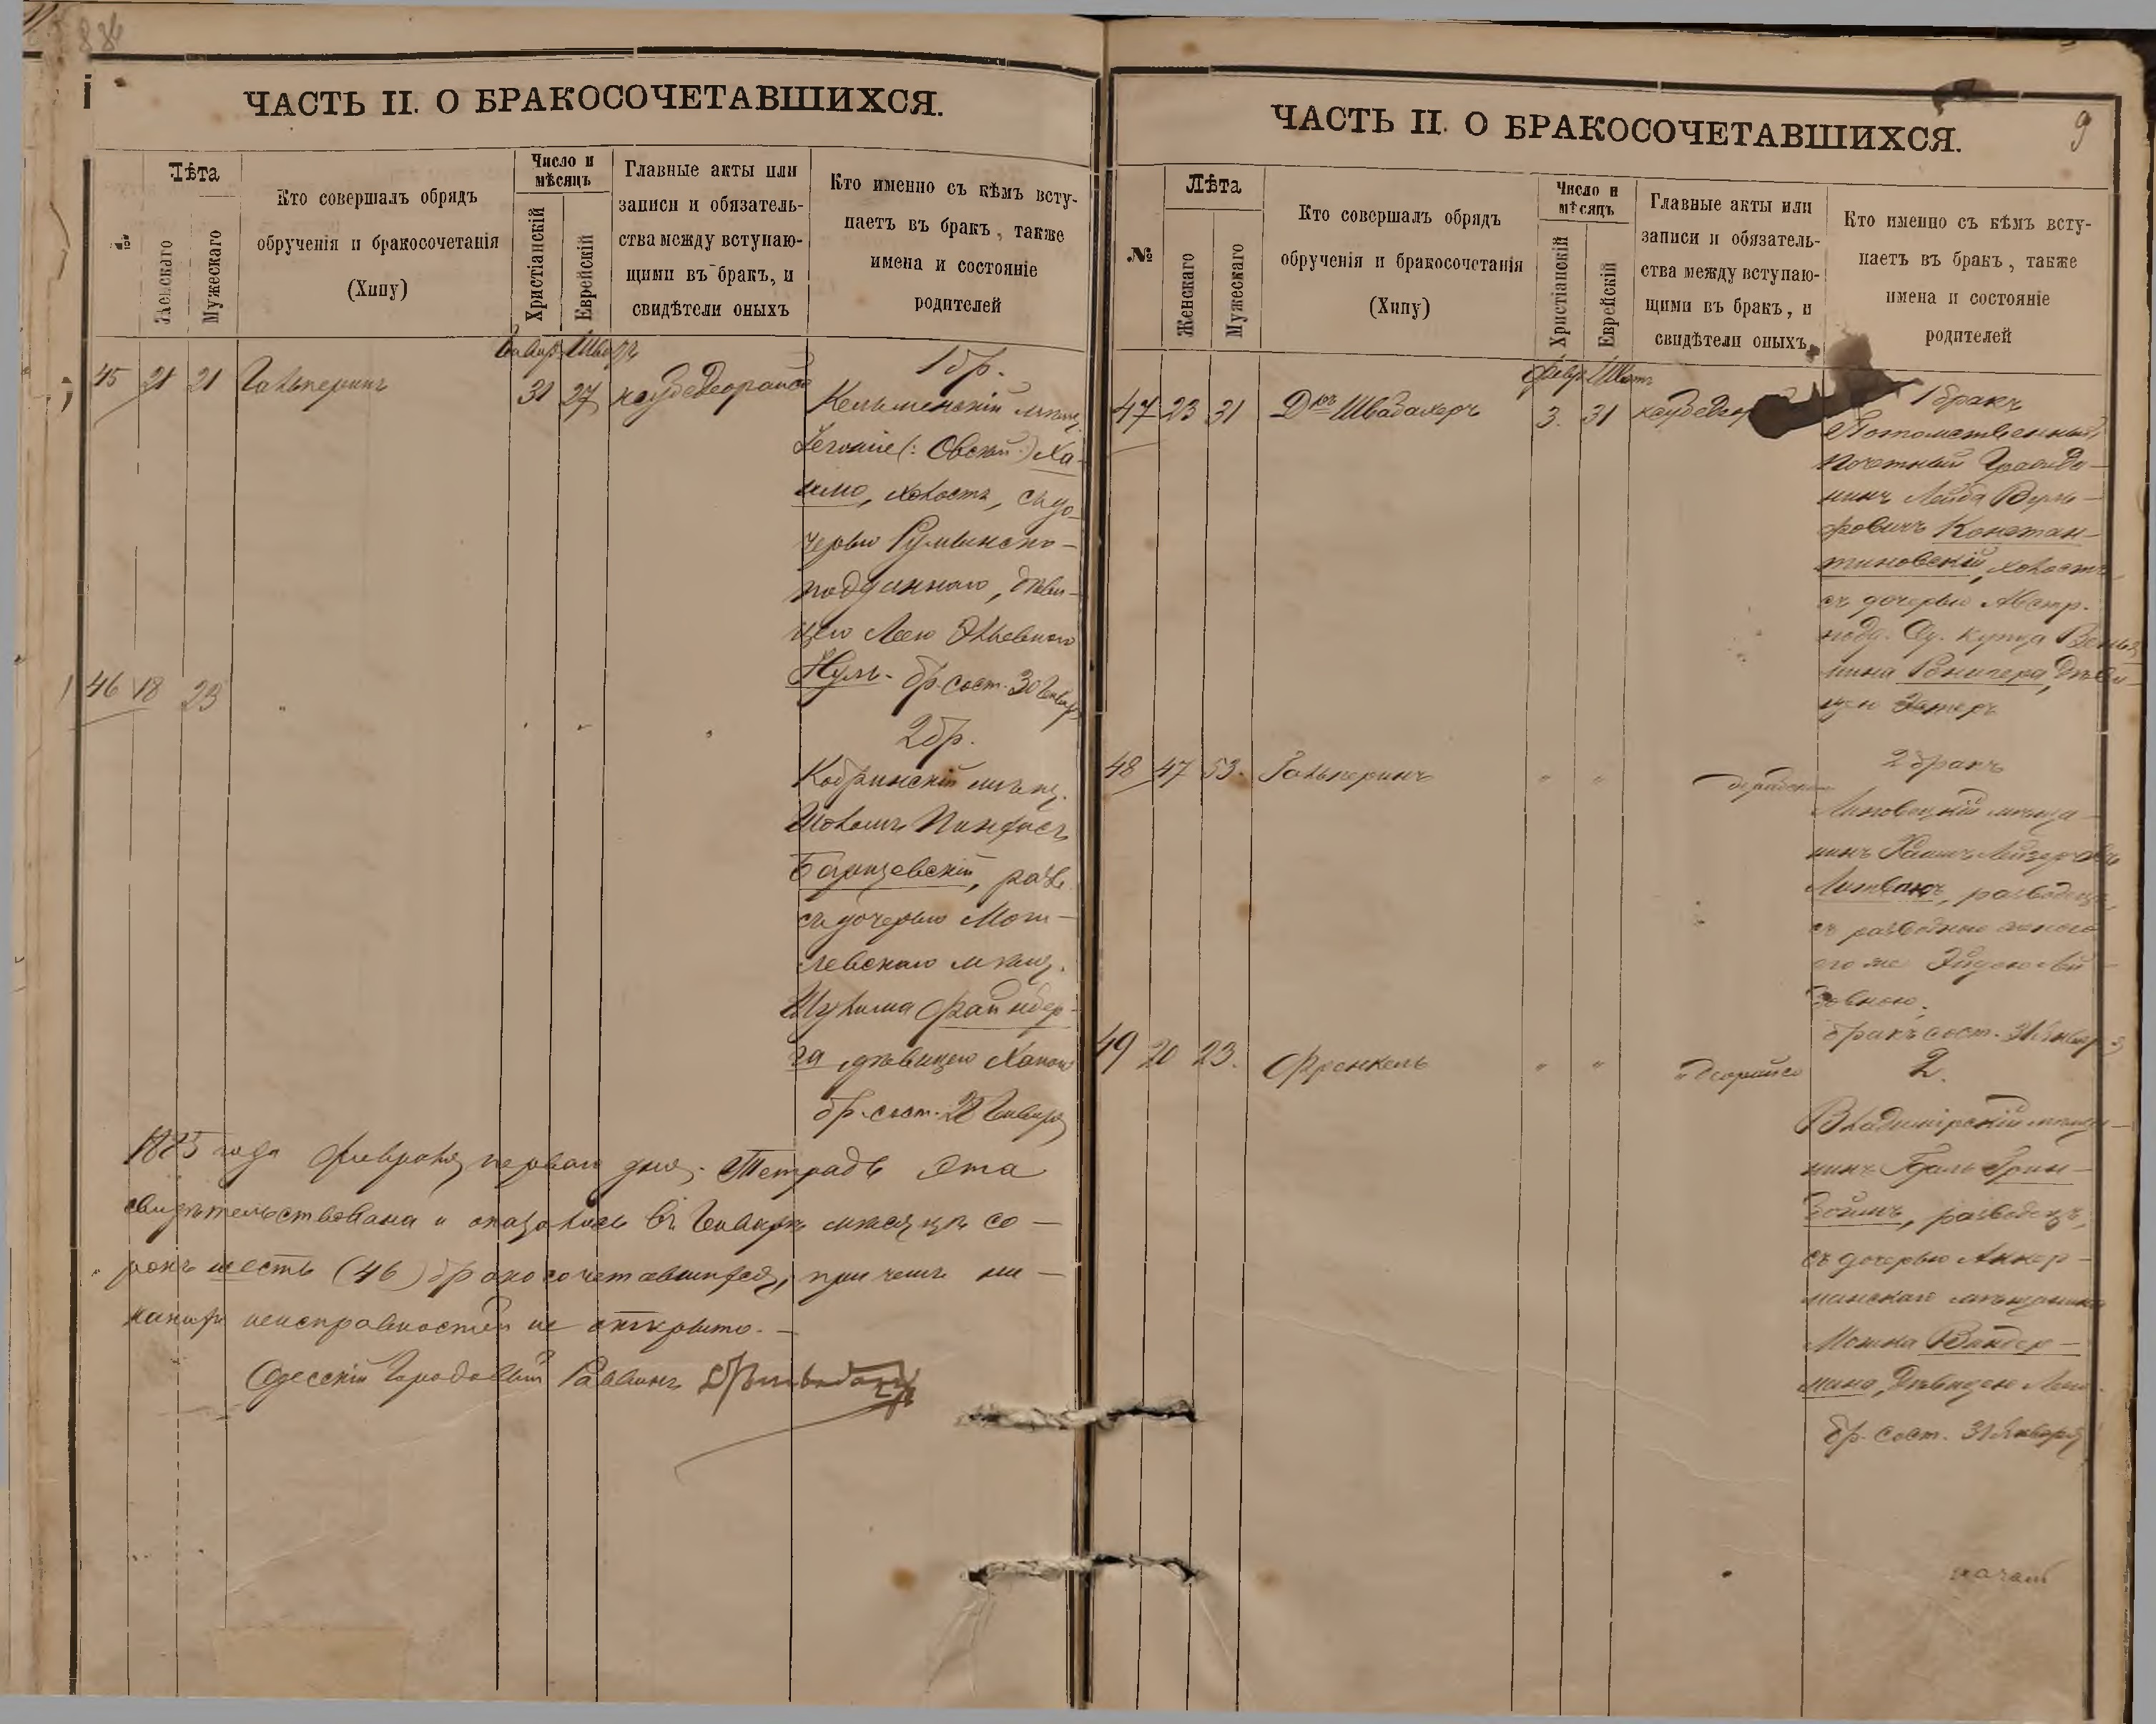 884
ЧАСТЬ II. О БРАКОСОЧЕТАВШИХСЯ.
№
Лѣта
Женскаго
Мужескаго
Кто совершалъ обрядъ
обрученія и бракосочетанія
(Хипу)
Число и
мѣсяцъ
Христіанскій
Еврейскій
Главные акты или
записи и обязатель-
ства между вступаю-
щими въ бракъ, и
свидѣтели оныхъ
Кто именно съ кѣмъ всту-
паетъ въ бракъ, также
имена и состояніе
родителей
45 21 21 Гальперинъ
31 27
1 бр.
Кельменскій мѣщ.
(: Овсей :) Ха-
холостъ, съ до-
черью Румынско-
подданнаго, дѣви-
цею Леею
Нуль - бр. сост. 30 Января
46 18 23 "
2 бр.
Кобринскій мѣщ.
Шоломъ Пинхасъ
разв.
съ дочерью Моги-
левскаго мѣщ.
Файнбер-
га дѣвицею Ханою
бр. сост. 28 Января
1885 года Февраля перваго дня. Тетрадь эта
свидѣтельствована и оказалось въ Январѣ мѣсяцѣ со-
рокъ шесть (46) бракосочетавшихся, при чемъ ни-
какихъ неисправностей не открыто. -
Одесскій Городовой Раввинъ
ЧАСТЬ II. О БРАКОСОЧЕТАВШИХСЯ.
9
№
Лѣта
Женскаго
Мужескаго
Кто совершалъ обрядъ
обрученія и бракосочетанія
(Хипу)
Число и
мѣсяцъ
Христіанскій
Еврейскій
Главные акты или
записи и обязатель-
ства между вступаю-
щими въ бракъ, и
свидѣтели оныхъ
Кто именно съ кѣмъ всту-
паетъ въ бракъ, также
имена и состояніе
родителей
Февр.
47 23 31 Дръ Швабахеръ 3. 31
1 бракъ
Потомственный
почетный Гражда-
нинъ Лейба Вуль-
фовичъ Констан-
тиновскій, холостъ
съ дочерью Австр.
подд. Од. купца Венья-
мина Ронигера, дѣви-
цею Эстеръ
48 47 53. Гальперинъ " "
2 бракъ
Липовецкій мѣща-
нинъ Хаимъ Лейзеровъ
Литвакъ, разводецъ,
съ разводною женою
его же
бракъ сост. 31 Января
49 20 23. Френкель " "
2.
Владимірскій мѣща-
нинъ Грин-
разводецъ,
съ дочерью Аккер-
манскаго мѣщанина
Вандер-
мана, дѣвицею
бр. сост. 31 Января